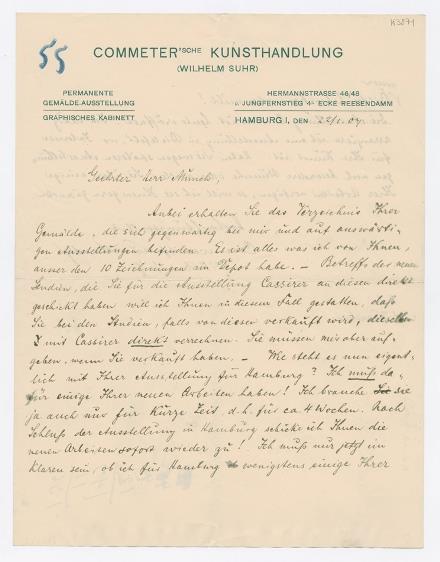 K3271
55
COMMETER'SCHE KUNSTHANDLUNG
(WILHELM SUHR)
PERMANENTE
GEMÄLDE-AUSSTELLUNG
GRAPHISCHES KABINETT
HERMANNSTRASSE 46/48
JUNGFERNSTIEG ECKE REESENDAMM
HAMBURG I, DEN 22/1.07.
Geehrter Herr Munch,
Anbei erhalten Sie das Verzeichnis Ihrer
Gemälde, die sich gegenwärtig bei mir und auf auswärti-
gen Ausstellungen befinden. Es ist alles was ich von Ihnen,
ausser den 10 Zeichnungen im Depot habe. – Betreffs der neuen
Studien, die Sie für die Ausstellung Cassirer an diesen direkt
geschickt haben will ich Ihnen in diesem Fall gestatten, daß
Sie bei den Studien, falls von diesen verkauft wird, dieselben
mit Cassirer direkt verrechnen. Sie müssen mir aber auf-
geben, wenn Sie verkauft haben. – Wie steht es nun eigent-
lich mit Ihrer Ausstellung für Hamburg? Ich muß da-
für einige Ihrer neuen Arbeiten haben! Ich brauche sie
ja auch nur für kurze Zeit d.h. für ca 4 Wochen. Nach
Schluß der Ausstellung in Hamburg schicke ich Ihnen die
neuen Arbeiten sofort wieder zu! Ich muß nur jetzt im
klaren sein, ob ich für Hamburg wenigstens einige Ihrer